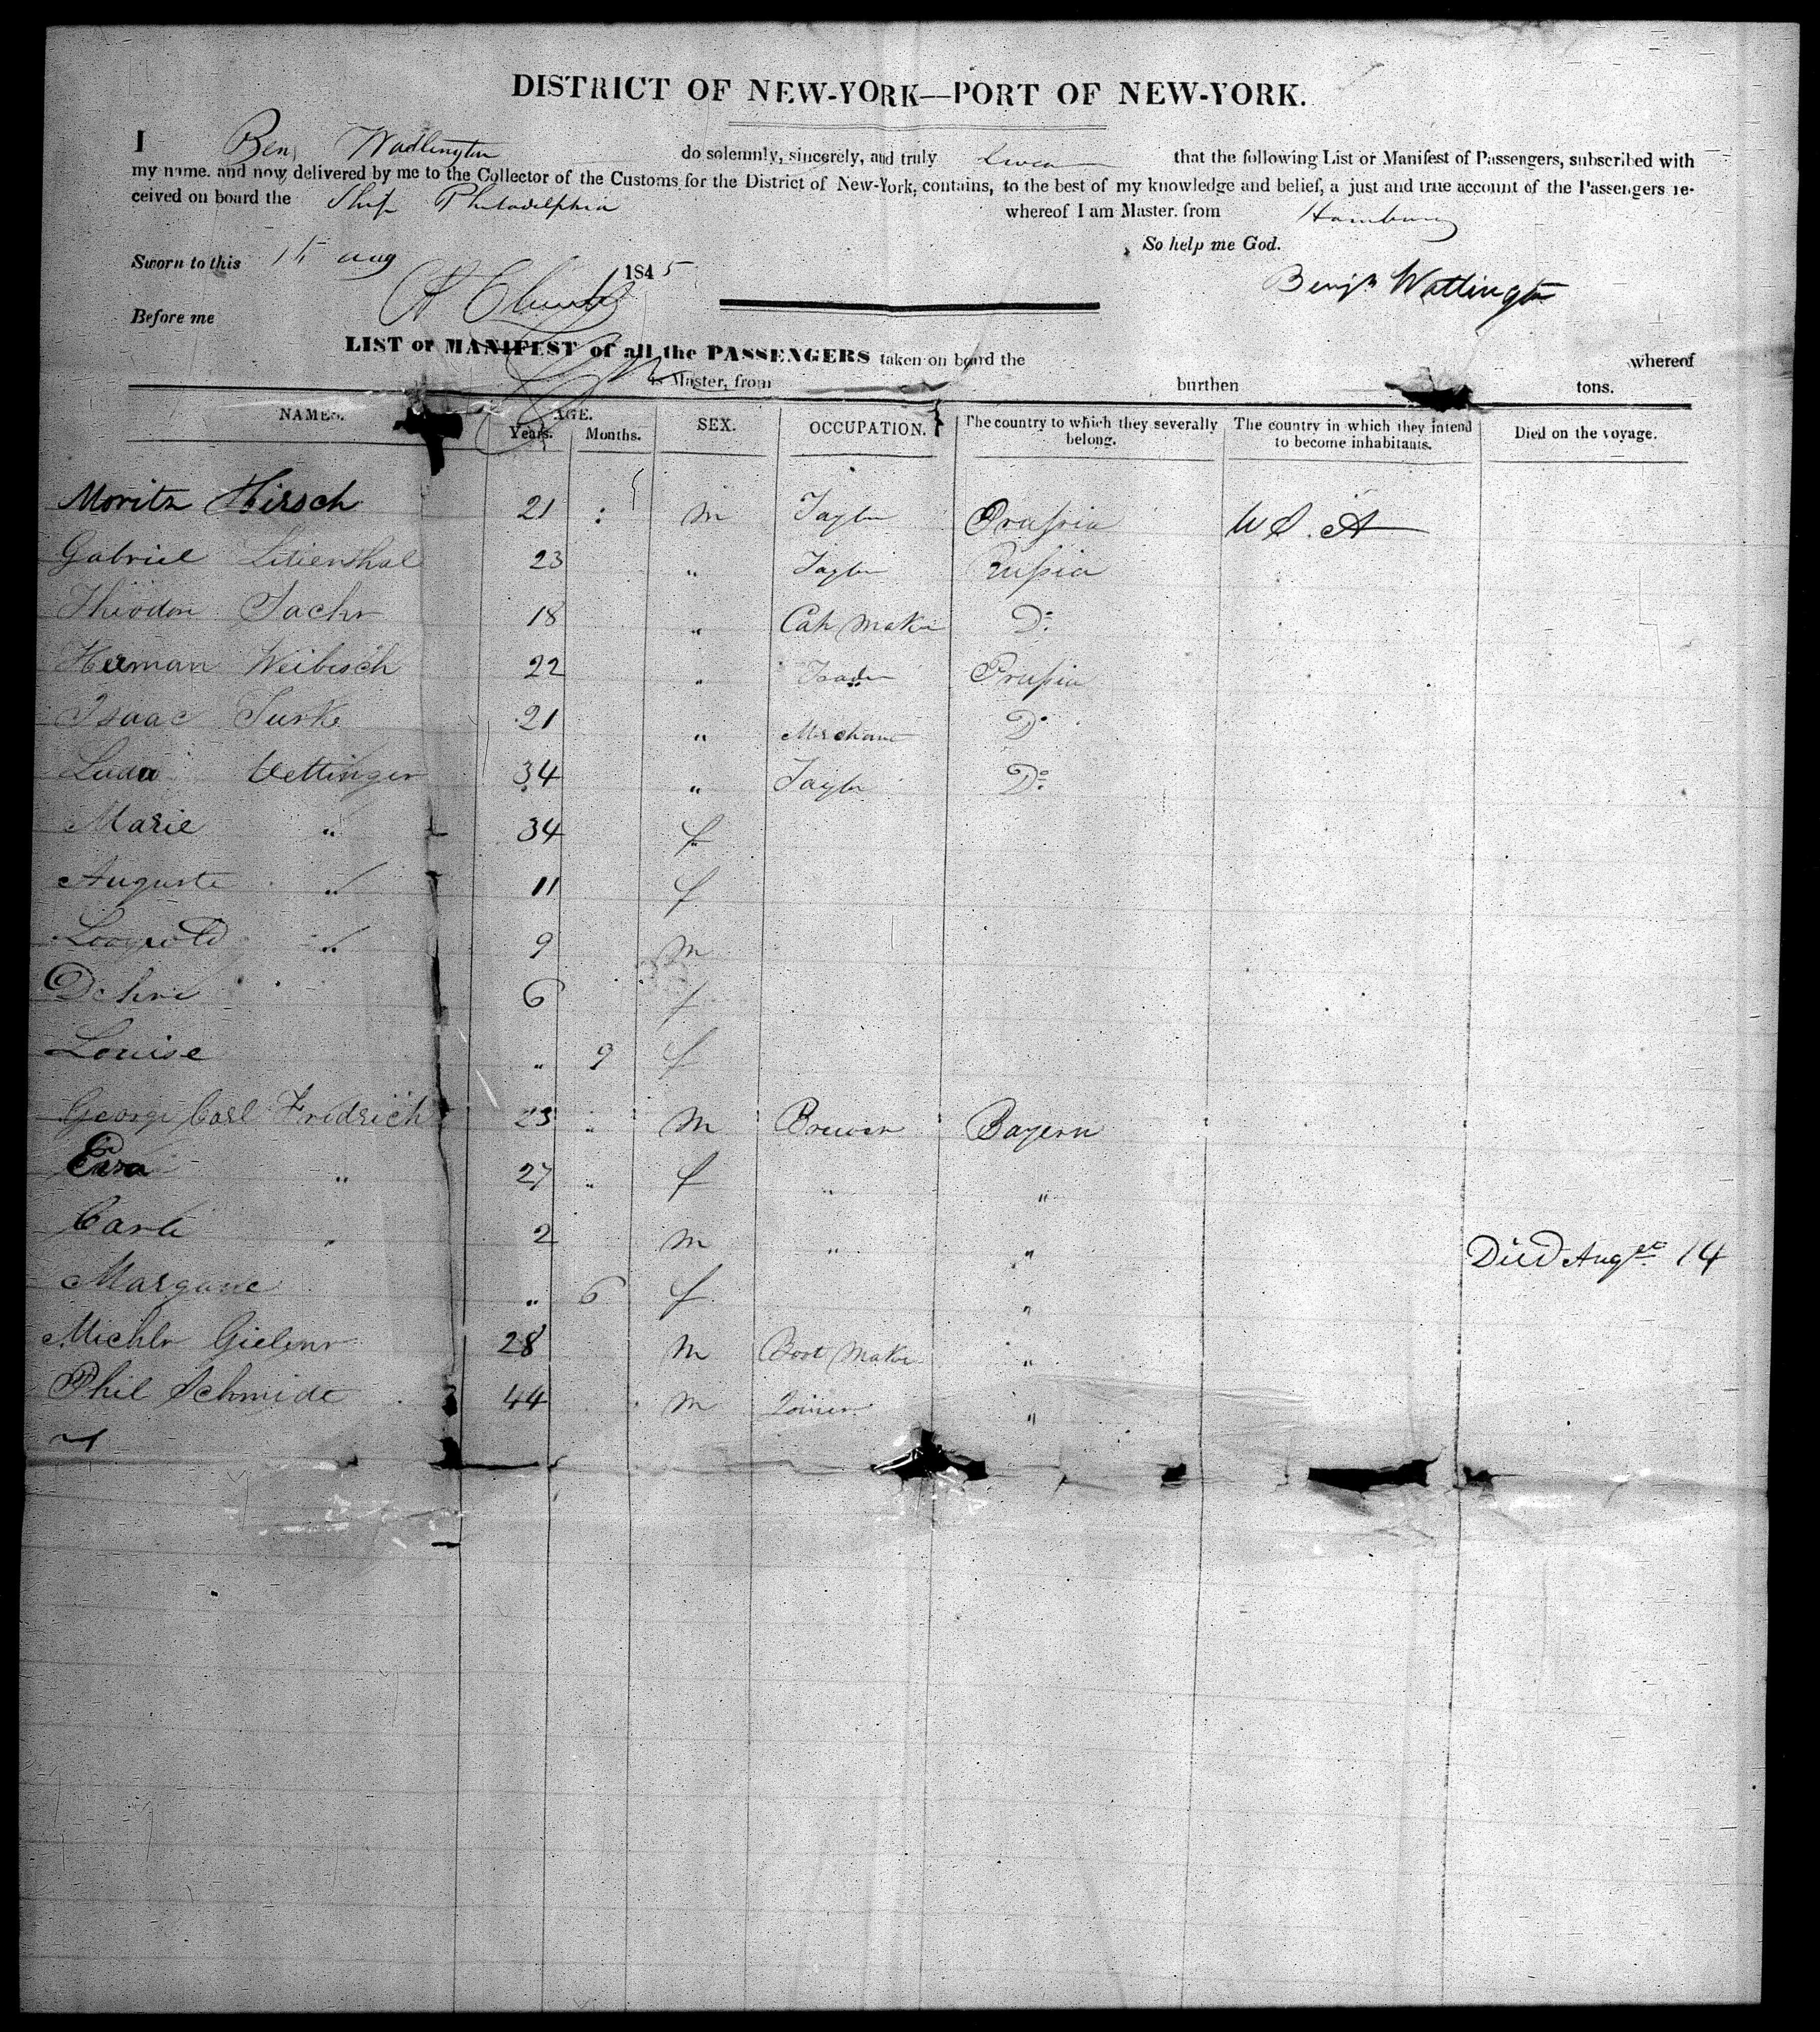 DISTRICT OF NEW-YORK—PORT OF NEW-YORK.
I Ben Wadlington do solemnly, sincerely, and truly that the following List or Manifest of Passengers, subscribed with
my name, and now delivered by me to the Collector of the Customs for the District of New-York, contains, to the best of my knowledge and belief, a just and true account of the Passengers re-
ceived on board the Ship Philadelphia whereof I am Master, from Hamburg
So help me God.
Sworn to this 15 aug 1845
Benjn Watlington
Before me
LIST or MANIFEST of all the PASSENGERS taken on board the whereof
is Master, from burthen tons.
NAMES. AGE. Years. Months. SEX. OCCUPATION. The country to which they severally belong. The country in which they intend to become inhabitants. Died on the voyage.
Moritz Hirsch 21 m Taylor Prussia U S. A
Gabriel Lilienthal 23 " Taylor Russia
Theodor Sachr 18 " Cap Maker Do
Herman Weibisch 22 " Prussia
Isaac Turke 21 " Merchant Do
Vettinger 34 " Taylor Do
Marie " 34 f
Auguste " 11 f
Leopold " 9 m
6 f
Louise " 9 f
George Carl Fredrich 25 " m Brewer Bayern
27 " f " "
Carl " 2 m " " Died Aug 14
" 6 f "
28 m Boot Maker "
Phil Schmidt 44 m Joiner "